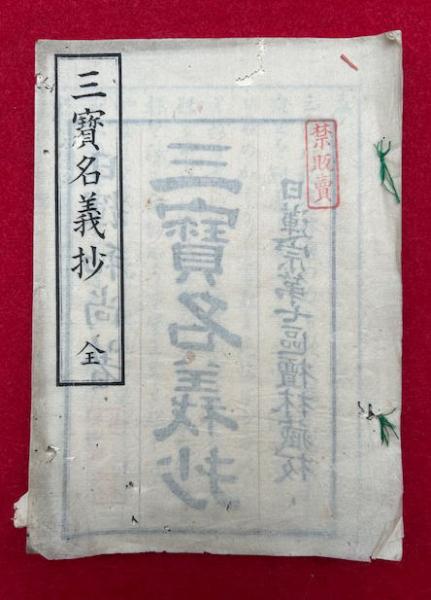 禁販賣
三寳名義抄 全
日蓮宗第七區檀林藏板
三寳名義抄